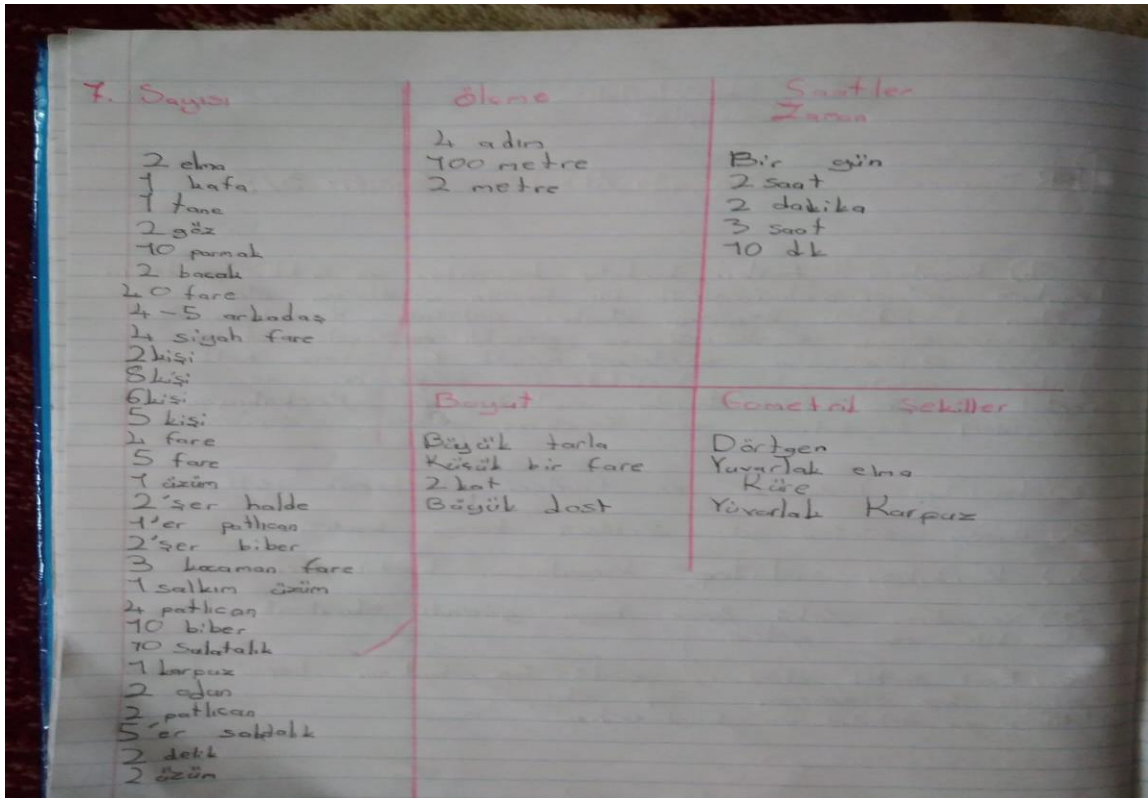 7. Sayısı
2 elma
1 kafa
1 tane
2 göz
10 parmak
2 bacak
40 fare
4-5 arkadaş
4 siyah fare
2 kişi
8 kişi
6 kişi
5 kişi
4 fare
5 fare
1 üzüm
2'şer halde
1'er patlıcan
2'şer biber
3 kocaman fare
1 salkım üzüm
4 patlıcan
10 biber
10 Salatalık
1 karpuz
2 adam
2 patlıcan
5'er
2 delik
2 üzüm
Ölçme
4 adım
100 metre
2 metre
Saatler
Zaman
Bir gün
2 saat
2 dakika
3 saat
10 dk
Boyut
Büyük tarla
Küçük bir fare
2 kat
Büyük dost
Geometrik Şekiller
Dörtgen
Yuvarlak elma
Küre
Yuvarlak Karpuz